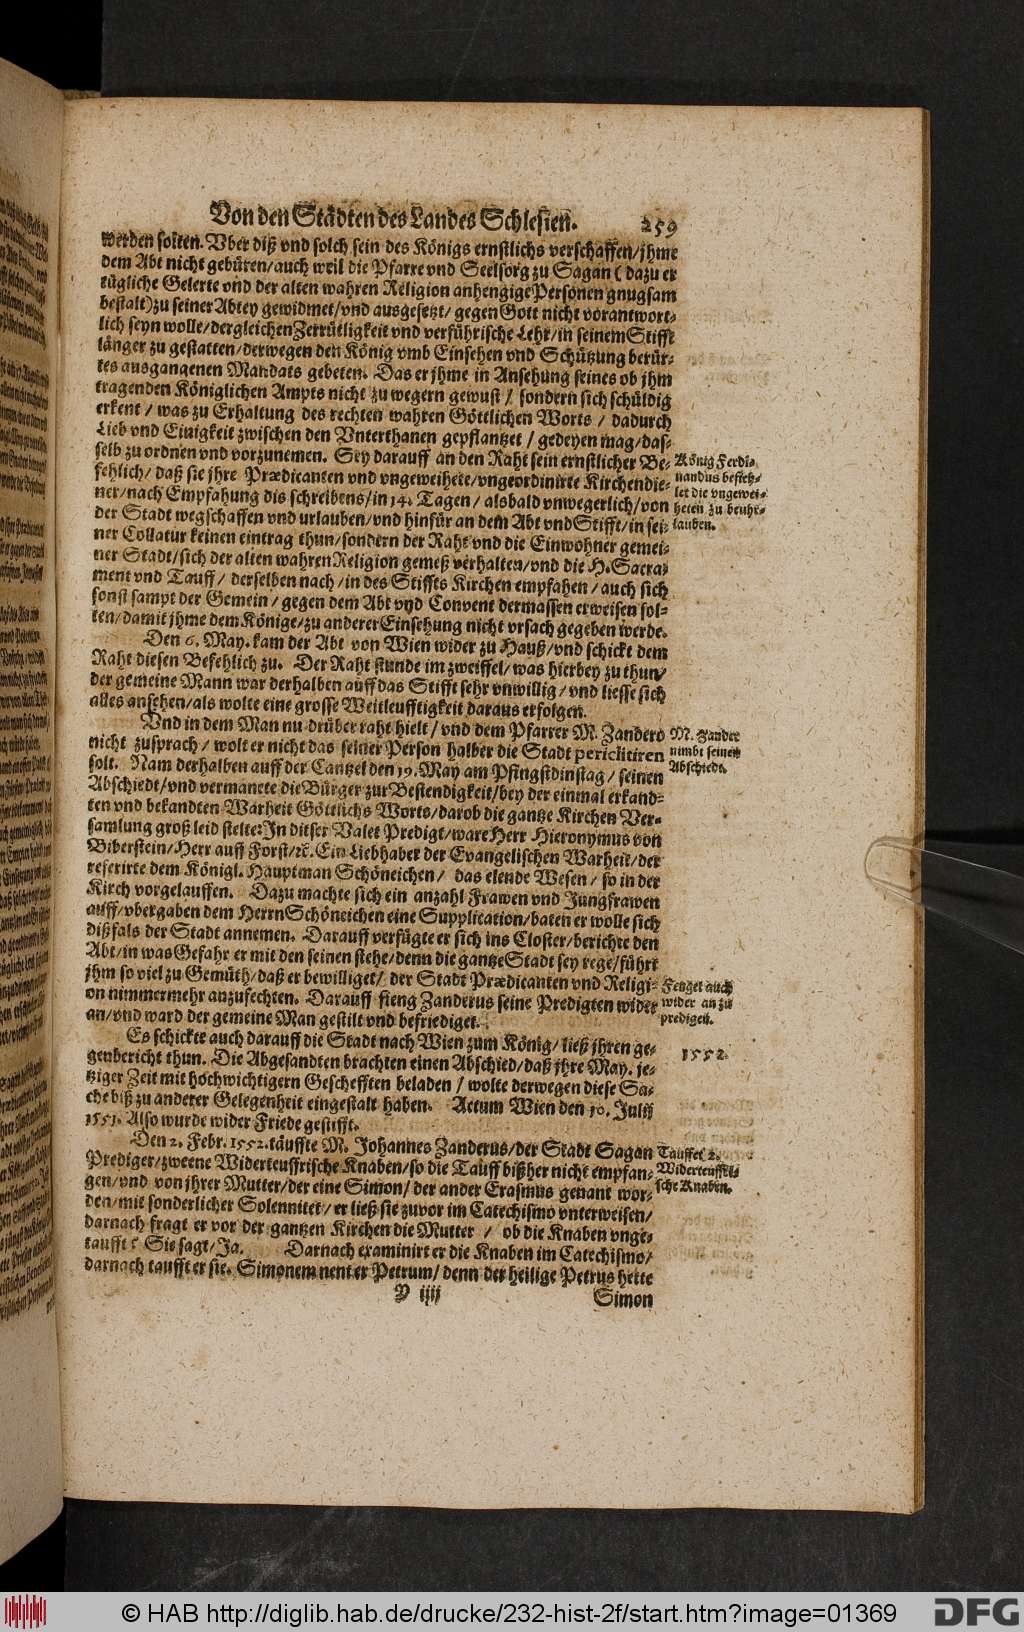 Von den Städten des Landes Schlesien. 259
werden solten. Vber diß vnd solch sein des Königs ernstlichs verschaffen/jhme
dem Abt nicht gebüren/auch weil die Pfarre vnd Seelsorg zu Sagan (dazu er
tügliche Gelerte vnd der alten wahren Religion anhengige Personen gnugsam
bestalt) zu seiner Abtey gewidmet/vnd ausgesetzt/ gegen Gott nicht vorantwort-
lich seyn wolle/dergleichen Zerrütligkeit vnd verführische Lehr/in seinem Stifft
länger zu gestatten/derwegen den König vmb Einsehen vnd Schützung berür-
tes ausgangenen Mandats gebeten. Das er jhme in Ansehung seines ob jhm
tragenden Königlichen Ampts nicht zu wegern gewust / sondern sich schüldig
erkent / was zu Erhaltung des rechten wahren Göttlichen Worts / dadurch
Lieb vnd Einigkeit zwischen den Vnterthanen gepflantzet / gedeyen mag/das-
selb zu ordnen vnd vorzunemen. Sey darauff an den Raht sein ernstlicher Be-
fehlich/ daß sie jhre Prædicanten vnd vngeweihete/vngeordinirte Kirchendie-
ner/nach Empfahung dis schreibens/in 14. Tagen / alsbald vnwegerlich/von
der Stadt wegschaffen vnd urlauben/vnd hinfür an dem Abt vnd Stifft/in sei-
ner Collatur keinen eintrag thun/sondern der Raht vnd die Einwohner gemei-
ner Stadt/sich der alten wahren Religion gemeß verhalten/vnd die H. Sacra-
ment vnd Tauff / derselben nach/in des Stiffts Kirchen empfahen / auch sich
sonst sampt der Gemein / gegen dem Abt vnd Convent dermassen erweisen sol-
ten/damit jhme dem Könige/zu anderer Einsehung nicht vrsach gegeben werde.
König Ferdi-
nandus befieh-
let die vngewei-
heten zu beuhr-
lauben.
Den 6. May. kam der Abt von Wien wider zu Hauß/vnd schickt dem
Raht diesen Befehlich zu. Der Raht stunde im zweiffel/was hierbey zu thun/
der gemeine Mann war derhalben auff das Stifft sehr vnwillig/vnd liesse sich
alles ansehen/als wolte eine grosse Weitleufftigkeit daraus erfolgen.
Vnd in dem Man nu drüber raht hielt / vnd dem Pfarrer M. Zandero
nicht zusprach / wolt er nicht das seiner Person halber die Stadt periclitiren
solt. Nam derhalben auff der Cantzel den 19. May am Pfingstdinstag / seinen
Abschiedt/vnd vermanete die Bürger zur Bestendigkeit/bey der einmal erkand-
ten vnd bekandten Warheit Göttlichs Worts/darob die gantze Kirchen Ver-
samlung groß leid stelte: In dieser Valet Predigt/ware Herr Hieronymus von
Biberstein/Herr auff Forst/rc. Ein Liebhaber der Evangelischen Warheit/der
referirte dem Königl. Hauptman Schöneichen / das elende Wesen / so in der
Kirch vorgelauffen. Dazu machte sich ein anzahl Frawen vnd Jungfrawen
auff/vbergaben dem Herrn Schöneichen eine Supplication/baten er wolle sich
dißfals der Stadt annemen. Darauff verfügte er sich ins Closter/berichte den
Abt/in was Gefahr er mit den seinen stehe/denn die gantze Stadt sey rege/führt
jhm so viel zu Gemüth/daß er bewilliget/ der Stadt Prædicanten vnd Religi-
on nimmermehr anzufechten. Darauff fieng Zanderus seine Predigten wider
an/vnd ward der gemeine Man gestilt vnd befriediget.
M. Zander
nimbt seinen
Abschiedt.
Fenget auch
wider an zu
predigen.
Es schickte auch darauff die Stadt nach Wien zum König/ ließ jhren ge-
genbericht thun. Die Abgesandten brachten einen Abschied/daß jhre May. je-
tziger Zeit mit hochwichtigern Geschefften beladen / wolte derwegen diese Sa-
che biß zu anderer Gelegenheit eingestalt haben. Actum Wien den 10. Julij
1551. Also wurde wider Friede gestifft.
1552.
Den 2. Febr. 1552. täuffte M. Johannes Zanderus/der Stadt Sagan
Prediger/zweene Widerteuffrische Knaben/so die Tauff bißher nicht empfan-
gen/vnd von jhrer Mutter/der eine Simon/ der ander Erasmus genant wor-
den/mit sonderlicher Solennitet/er ließ sie zuvor im Catechismo vnterweisen/
darnach fragt er vor der gantzen Kirchen die Mutter / ob die Knaben vnge-
taufft? Sie sagt/Ja. Darnach examinirt er die Knaben im Catechismo/
darnach taufft er sie. Simonem nent er Petrum/ denn der heilige Petrus hette
Tauffet 2.
Widerteuffri-
sche Knaben.
Y iiij Simon
© HAB http://diglib.hab.de/drucke/232-hist-2f/start.htm?image=01369
DFG